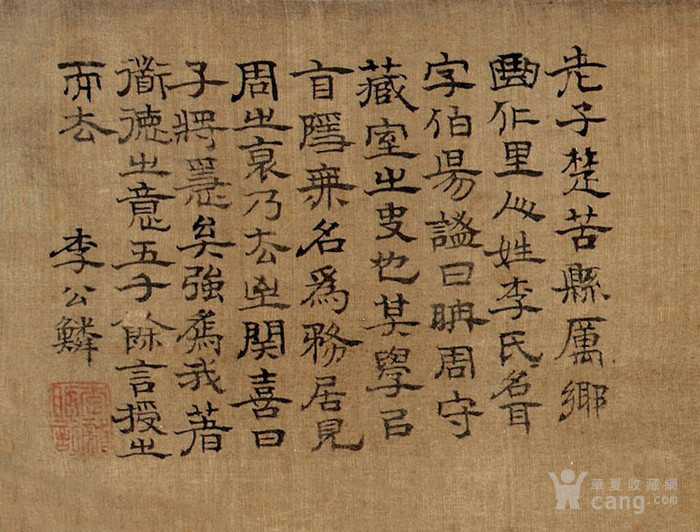 老子楚苦縣厲鄉
曲仁里人姓李氏名耳
字伯昜謚曰聃周守
藏室之史也其學㠯
自隱無名爲務居見
周之衰乃去至関喜曰
子將隱矣強爲我著
衜德之意五千餘言授之
而去
李公麟
華夏收藏網
cang.com